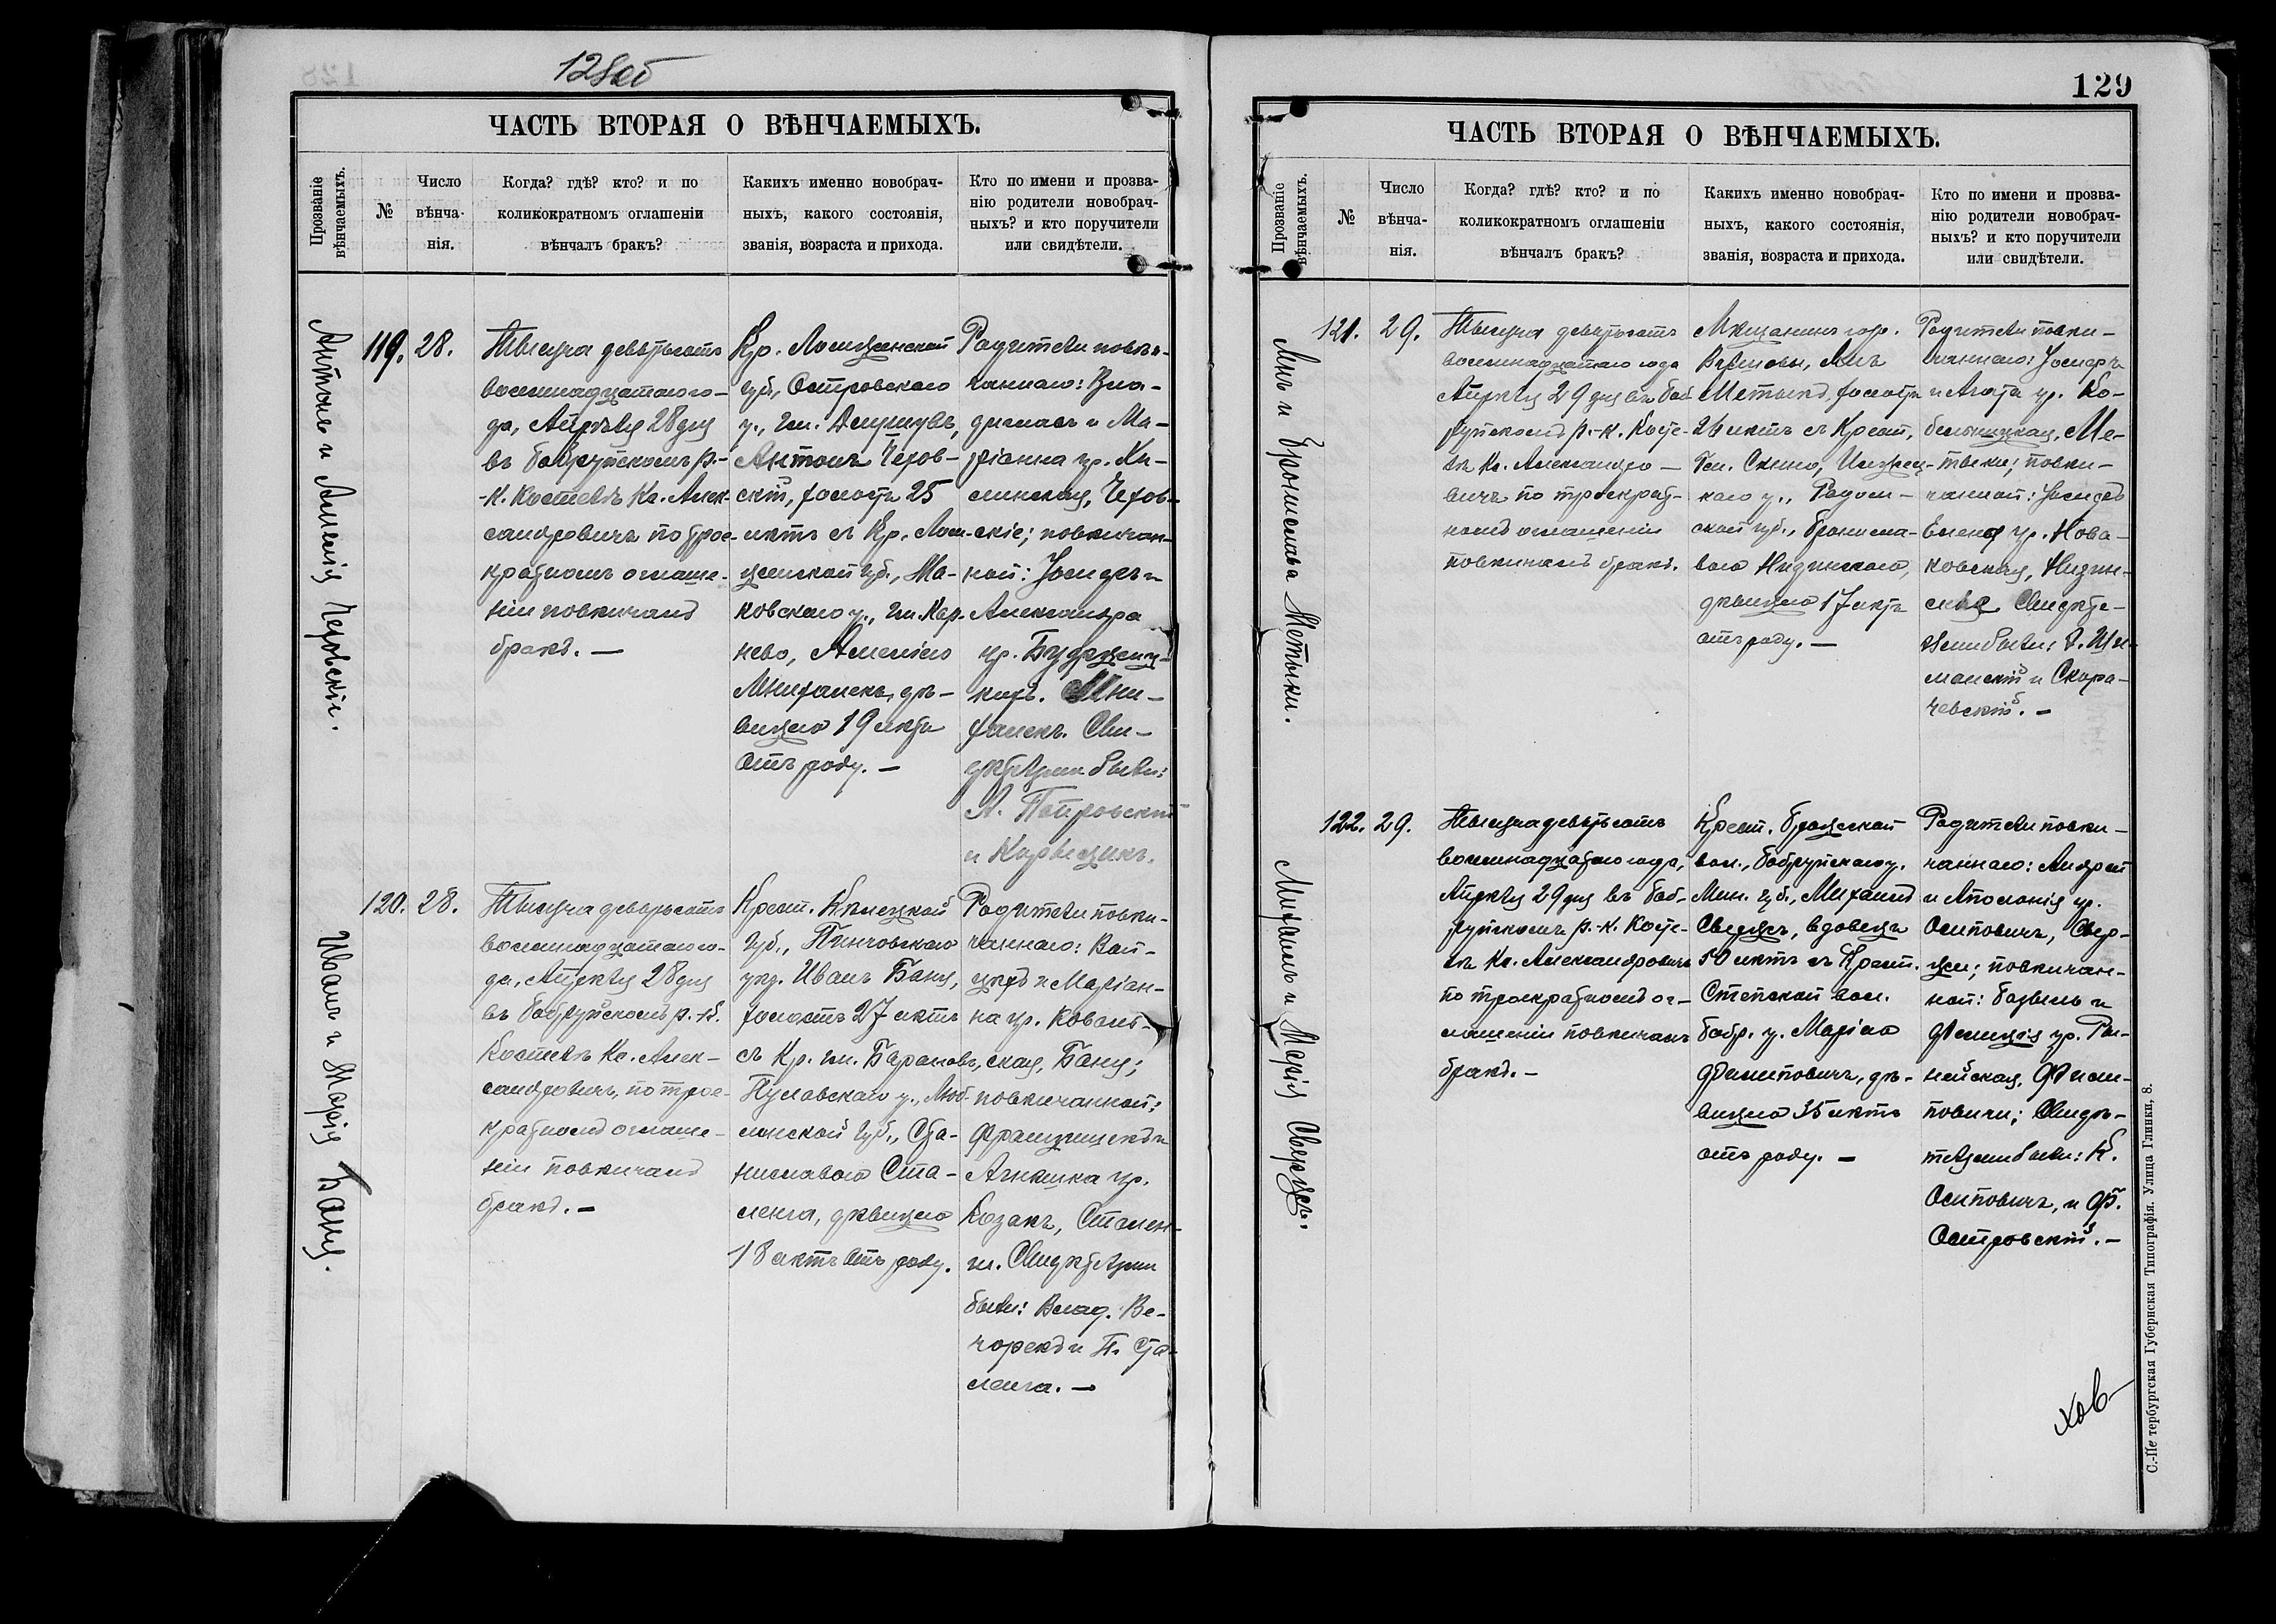 128об
ЧАСТЬ ВТОРАЯ О ВѢНЧАЕМЫХЪ.
Прозваніе
вѣнчаемыхъ.
№
Число
вѣнча-
нія.
Когда? гдѣ? кто? и по
коликократномъ оглашеніи
вѣнчалъ бракъ?
Какихъ именно новобрач-
ныхъ, какого состоянія,
званія, возраста и прихода.
Кто по имени и прозва-
нію родители новобрач-
ныхъ? и кто поручители
или свидѣтели.
Антоній и Амелія Черовскіе.
119. 28.
Тысяча девятьсотъ
восемнадцатаго го-
да, Апрѣля 28 дня
въ Бобруйскомъ р.-
-к. Костелѣ Кс. Алек-
сандровичъ по трое-
кратномъ оглаше-
ніи повѣнчалъ
бракъ. —
Кр. Ломжинской
губ., Островскаго
у., гм.
Антонъ Черов-
скій, холостъ 25
лѣтъ съ Кр. Лом-
жинской губ., Ма-
ковскаго у., гм. Кар-
нево, Амеліею
дѣ-
вицею 19 лѣтъ
отъ роду. —
Родители повѣн-
чаннаго: Вла-
диславъ и Ма-
ріанна ур. Хи-
линская, Черов-
скіе; повѣнчан-
ной: Іосифъ и
Александра
ур.
Сви-
дѣтелями были:
А. Петровскій
и
Иванъ и Марія Баня.
120. 28.
Тысяча девятьсотъ
восемнадцатаго го-
да, Апрѣля 28 дня
въ Бобруйскомъ р.-к.
Костелѣ Кс. Алек-
сандровичъ, по трое-
кратномъ оглаше-
ніи повѣнчалъ
бракъ. —
Крест. Кѣлецкой
губ., Пинчовскаго
уѣз. Иванъ Баня,
холостъ 27 лѣтъ
съ Кр. гм. Барановъ,
Пулавскаго у., Люб-
линской губ., Ста-
ниславою Ста-
ленга, дѣвицею
18 лѣтъ отъ роду.
Родители повѣн-
чаннаго: Вой-
цѣхъ и Маріан-
на ур. Коваль-
ская, Баня;
повѣнчанной:
Францишекъ и
Агнѣшка ур.
Козакъ, Стален-
ги. Свидѣтелями
были: Влад. Ве-
чорекъ и П. Ста-
ленга. —
129
ЧАСТЬ ВТОРАЯ О ВѢНЧАЕМЫХЪ.
Прозваніе
вѣнчаемыхъ.
№
Число
вѣнча-
нія.
Когда? гдѣ? кто? и по
коликократномъ оглашеніи
вѣнчалъ бракъ?
Какихъ именно новобрач-
ныхъ, какого состоянія,
званія, возраста и прихода.
Кто по имени и прозва-
нію родители новобрач-
ныхъ? и кто поручители
или свидѣтели.
Янъ и Бронислава Метыки.
121. 29.
Тысяча девятьсотъ
восемнадцатаго года
Апрѣля 29 дня въ Боб-
руйскомъ р.-к. Косте-
лѣ Кс. Александро-
вичъ по троекрат-
номъ оглашеніи
повѣнчалъ бракъ.
Мѣщанинъ гор.
Варшавы, Янъ
Метыкъ, холостъ
26 лѣтъ съ Крест.
гм. Скшно, Илжец-
каго у., Радом-
ской губ., Брониста-
вою Нидзинскою,
дѣвицею 17 лѣтъ
отъ роду. —
Родители повѣн-
чаннаго: Іосифъ
и Агата ур. Ко-
бельницкая, Ме-
тыки; повѣн-
чанной: Іосифъ
Елена ур. Нова-
ковская, Нидзин-
скіе. Свидѣте-
лями были:
и Скора-
чевскій. —
Михаилъ и Марія Сверщъ.
122. 29.
Тысяча девятьсотъ
восемнадцатаго года,
Апрѣля 29 дня въ Боб-
руйскомъ р.-к. Косте-
лѣ Кс. Александровичъ
по троекратномъ ог-
лашеніи повѣнчалъ
бракъ. —
Крест. Брожской
вол., Бобруйскаго у.
Мин. губ., Михаилъ
Сверщъ, вдовецъ
50 лѣтъ съ Крест.
Степской вол.
Бобр. у. Маріею
Филиповичъ, дѣ-
вицею 35 лѣтъ
отъ роду. —
Родители повѣн-
чаннаго: Андрей
и Аполонія ур.
Осиповичъ, Свер-
щи; повѣнчан-
ной: Базыль и
Фелиція ур. Ра-
чейская, Фили-
повичи; Свидѣ-
телями были: К.
Осиповичъ, и Ф.
Островскій. —
С.-Петербургская Губернская Типографія. Улица Глинки, 8.